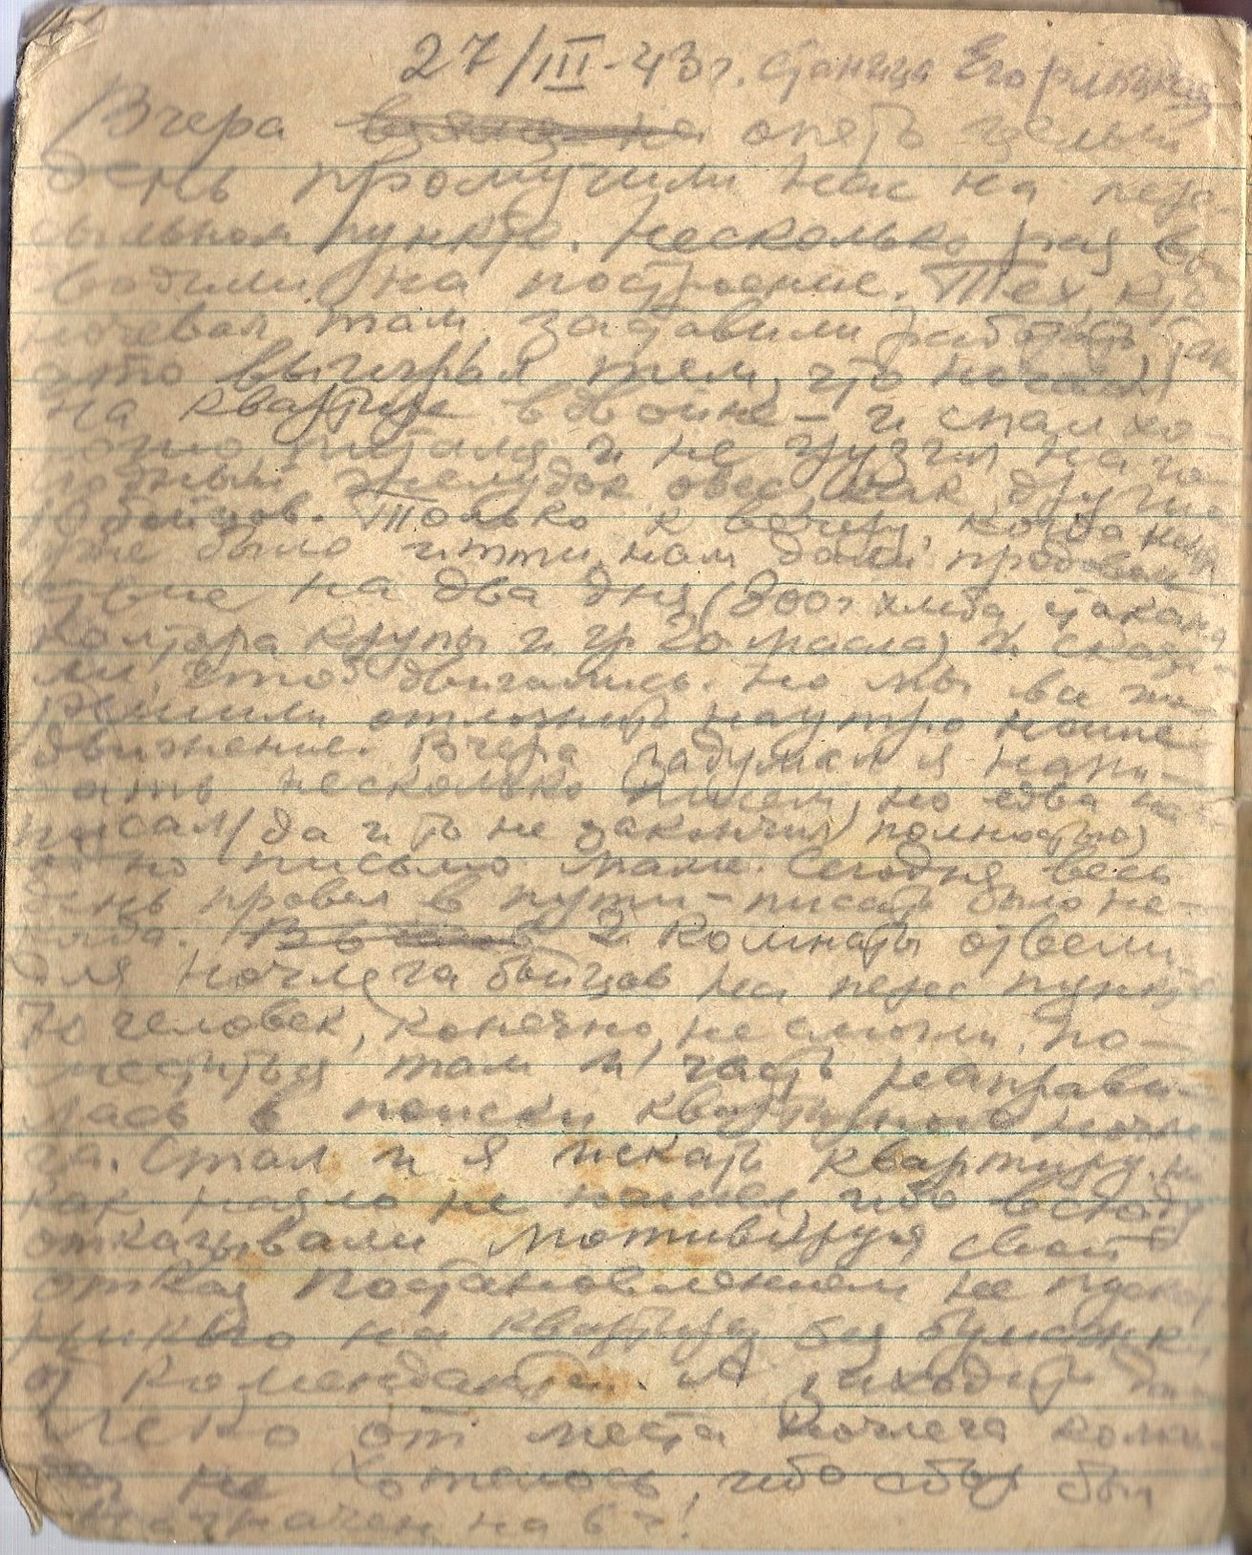 27/III-43 г. станица Егорлыцкая
Вчера опять целый
день промучили нас на пере-
сыльном пункте. Несколько раз вы-
водили на построение. Тех, кто
ночевал там заставили работать, так
что выиграл тем, что ночевал
на квартире вдвойне – и спал хо-
и не грузил на го-
лодный желудок овес, как другие
10 бойцов. Только к вечеру, когда нам
уже было итти, нам дали продоволь-
ствие на два дня (300 г хлеба, стакана
полтора крупы и гр 20 масла) и сказа-
ли, чтоб двигались. Но мы все же
решили отложить на утро наше
движение. Вчера задумал я напи-
сать несколько писем, но едва на-
писал (да и то не закончил полностью)
одно письмо маме. Сегодня весь
день провел в пути – писать было не-
когда. 2 комнаты отвели
для ночлега бойцов на перес пункте
70 человек, конечно, не смогли по-
меститься там и часть направи-
лась в поиски квартирного ночле-
га. Стал и я искать квартиру, но
как назло не нашел, ибо всюду
отказывали мотивируя свой
отказ постановлением не пускать
никого на квартиру без бумажки
от коменданта. А заходить да-
леко от места ночлега коман-
ды не хотелось, ибо сбор был
назначен на 6 ч!